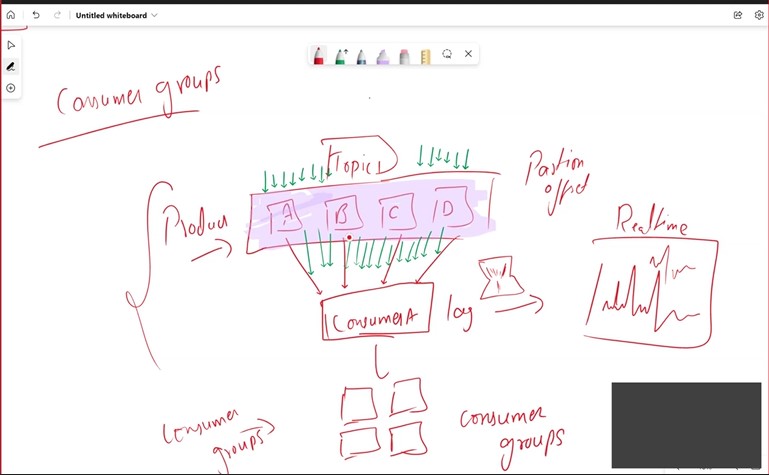 Untitled whiteboard
Consumer groups
Topic1
Partion
offset
Producer
A
B
C
D
Realtime
ConsumerA
log
consumer
groups
consumer
groups